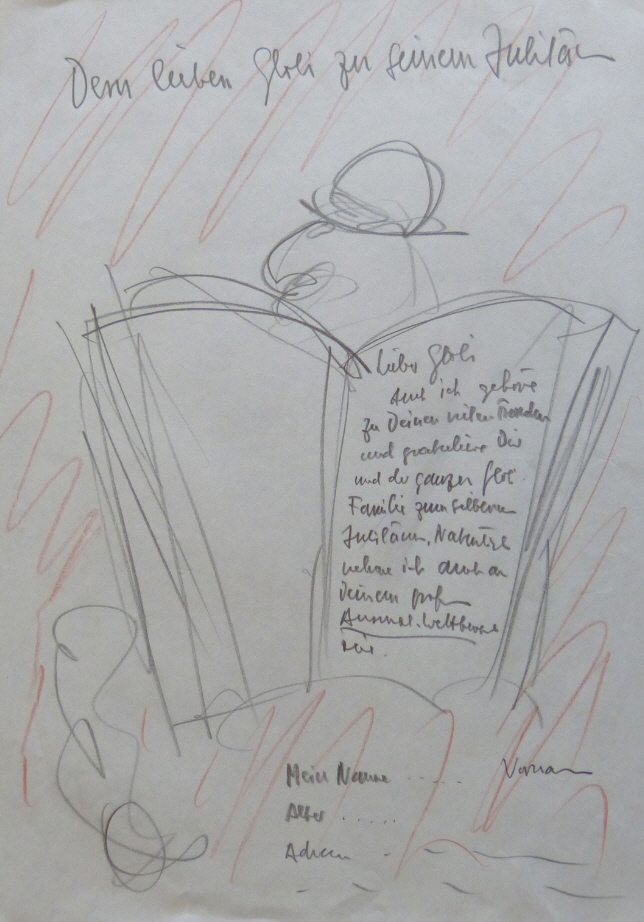 Dem lieben Globi zu seinem Jubiläum
Lieber Globi
Auch ich gehöre
zu Deinen vielen Freunden
und gratuliere Dir
und der ganzen Globi
Familie zum silbernen
Jubiläum. Natürlich
nehme ich auch an
Deinem großen
Ausmal-Wettbewerb
teil.
Mein Name ..... Vorname
Alter .....
Adresse -